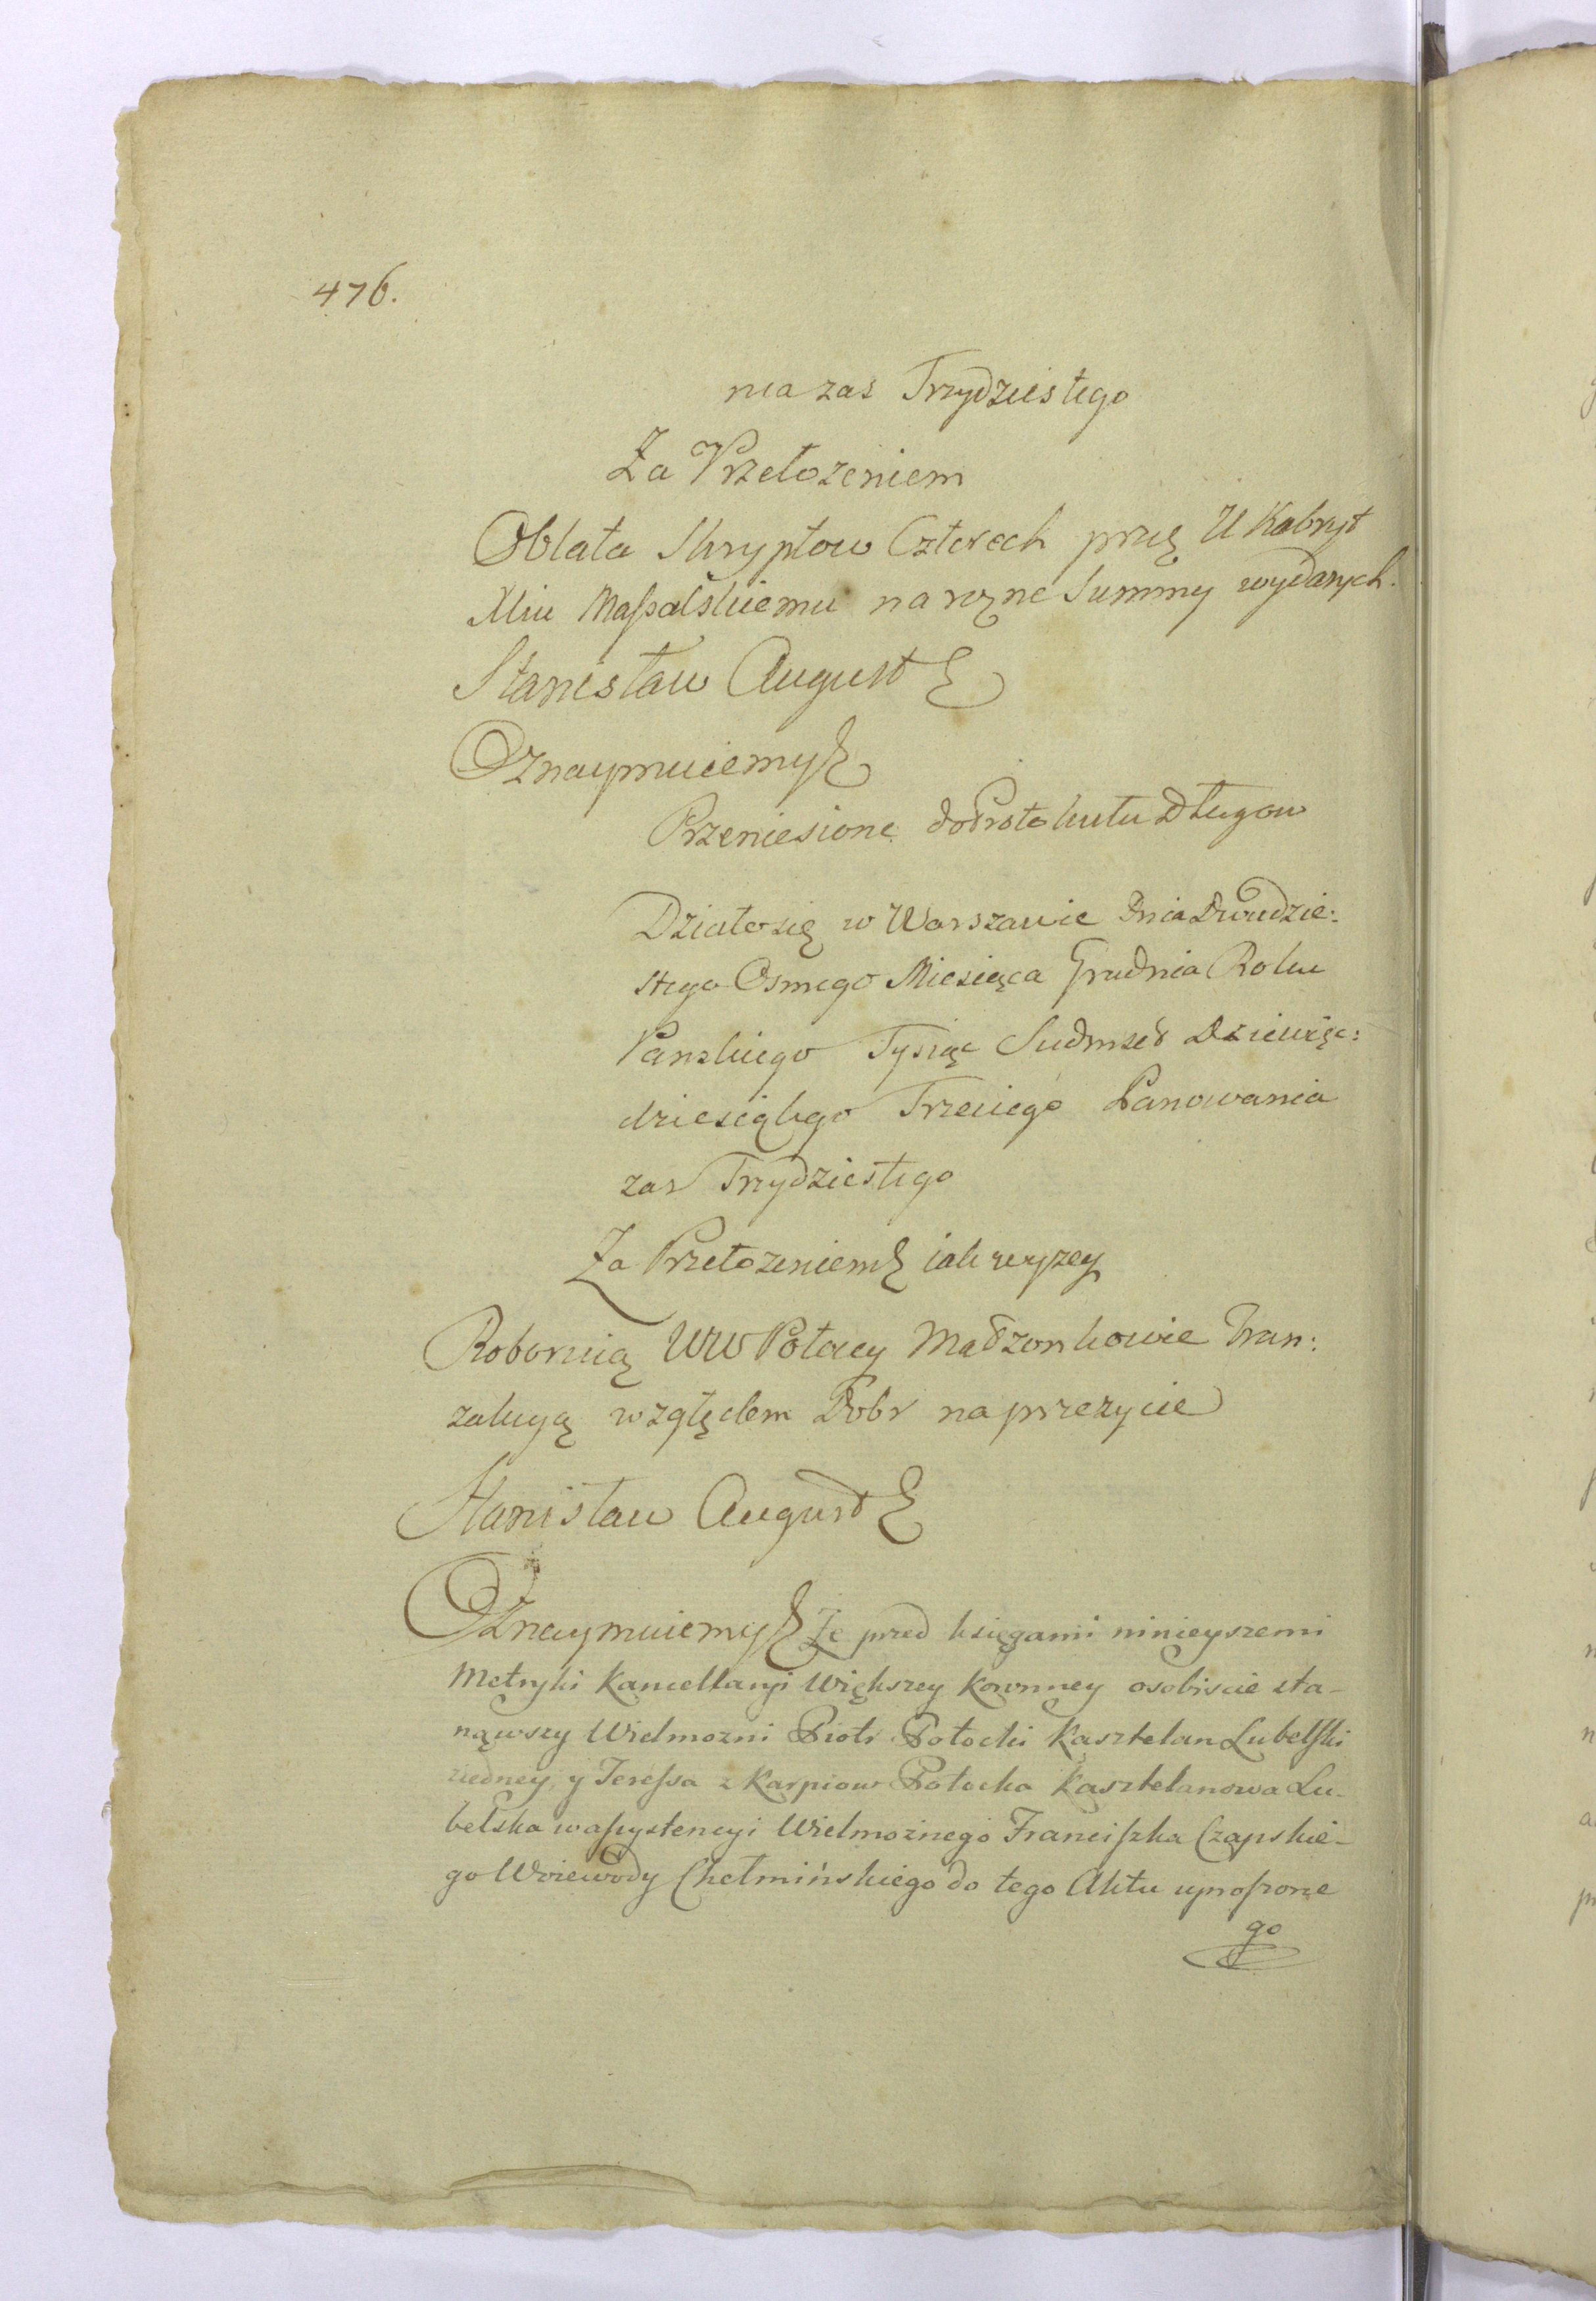 476.
nia zas Trzydziestego
Za Przełozeniem
Oblata Skryptow Czterech przez U Kabryt
Xciu Maſsalskiemu na rozne Summy wydanych.
Stanisław August
Oznaymuiemy
Przeniesione do Protokułu Długow
Działo się w Warszawie Dnia Dwudzie:
stego Osmego Miesiąca Grudnia Roku
Panskiego Tysiąc Siedmset Dziewięc:
dziesiątego Trzeciego Panowania
zas Trzydziestego
Za Przełozeniem iak wyzey
Roboruią WW Potoccy Małzonkowie Tran:
zakcyą względem Dobr na przezycie
Stanisław August
Oznaymuiemy Ze przed księgami ninieyszemi
Metryki Kancellaryi Większey Koronney osobiscie sta-
nąwszy Wielmozni Piotr Potocki Kasztelan Lubelſki
ziedney, y Tereſsa z Karpiow Potocka Kasztelanowa Lu-
belska w aſsystencyi Wielmożnego Franciſzka Czapskie-
go Woiewody Chełmińskiego do tego Aktu uproſzone
go